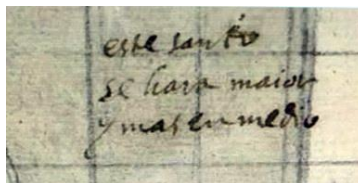 este santo
se hara maior
y mas en medio